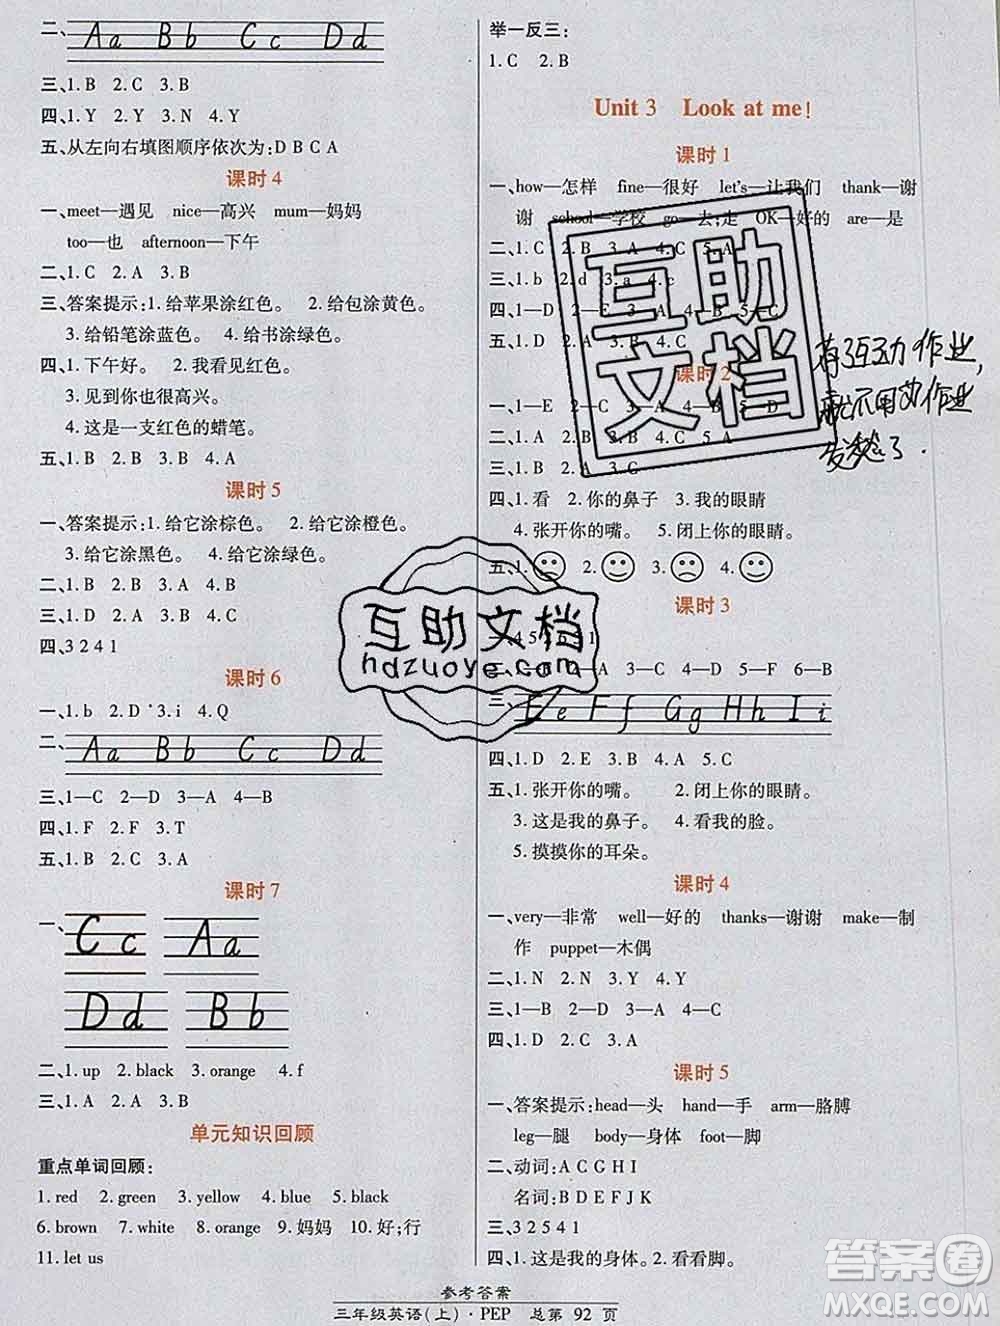 二、Aa Bb Cc Dd
三、1.B 2.C 3.B
四、1.Y 2.Y 3.N 4.Y
五、从左向右填图顺序依次为:D B C A
课时4
一、meet—遇见 nice—高兴 mum—妈妈
too—也 afternoon—下午
二、1.C 2.A 3.B
三、答案提示:1.给苹果涂红色。 2.给包涂黄色。
3.给铅笔涂蓝色。 4.给书涂绿色。
四、1.下午好。 2.我看见红色。
3.见到你也很高兴。
4.这是一支红色的蜡笔。
五、1.B 2.B 3.B 4.A
课时5
一、答案提示:1.给它涂棕色。 2.给它涂橙色。
3.给它涂黑色。 4.给它涂绿色。
二、1.B 2.B 3.A 4.B
三、1.B 2.A 3.B 4.C
四、3 2 4 1
课时6
一、1.b 2.D 3.i 4.Q
二、Aa Bb Cc Dd
三、1—C 2—D 3—A 4—B
四、1.F 2.F 3.T
五、1.B 2.C 3.A
课时7
一、Cc Aa
Dd Bb
二、1.up 2.black 3.orange 4.f
三、1.A 2.A 3.B
单元知识回顾
重点单词回顾:
1.red 2.green 3.yellow 4.blue 5.black
6.brown 7.white 8.orange 9.妈妈 10.好;行
11.let us
举一反三:
1.C 2.B
Unit 3 Look at me!
课时1
一、how—怎样 fine—很好 let's—让我们 thank—谢
谢 school—学校 go—去;走 OK—好的 are—是
二、1.C 2.B 3.A 4.C 5.A
三、1.b 2.d 3.a 4.c
四、1—D 2—A 3—B 4—B 5—C
五、1.D 2.
课时2
一、1—E 2—C 3—A 4—B 5—D
二、1.A 2.
三、1.C 2.A 3.C
四、1.看 2.你的鼻子 3.我的眼睛
4.张开你的嘴。 5.闭上你的眼睛。
五、1. 2. 3. 4.
课时3
二、 3—E 4—D 5—A 6—B
三、Ee Ff Gg Hh Ii
四、1.D 2.E 3.B 4.A 5.C
五、1.张开你的嘴。 2.闭上你的眼睛。
3.这是我的鼻子。 4.看我的脸。
5.摸摸你的耳朵。
课时4
一、very—非常 well—好的 thanks—谢谢 make—制
作 puppet—木偶
二、1.N 2.N 3.Y 4.Y
三、1—B 2—D 3—A 4—C
四、1.D 2.C 3.A
课时5
一、答案提示:head—头 hand—手 arm—胳膊
leg—腿 body—身体 foot—脚
二、动词:A C G H I
名词:B D E F J K
三、3 2 5 4 1
四、1.这是我的身体。2.看看脚。
参考答案
三年级英语(上)·PEP 总第 92 页
互助文档
有了互助作业,
就不用为作业
发愁了.
互助文档
hdzuoye.com
答案圈
MXQE.COM